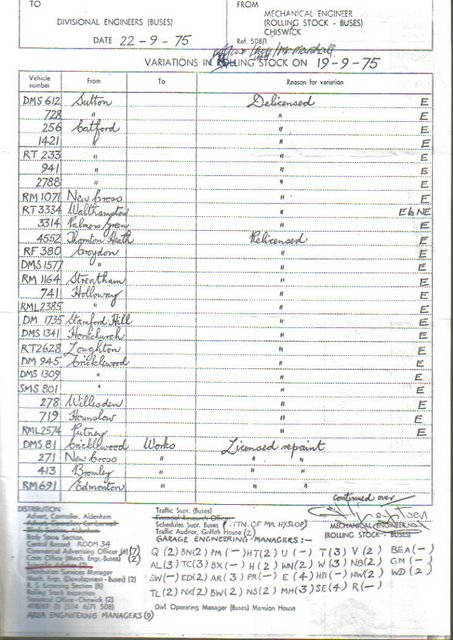 TO
DIVISIONAL ENGINEERS (BUSES)
DATE 22-9-75
FROM
MECHANICAL ENGINEER
(ROLLING STOCK - BUSES)
CHISWICK
Ref. 508/1
VARIATIONS IN ROLLING STOCK ON 19-9-75
Vehicle number From To Reason for variation
DMS 612 Sutton Delicensed E
728 " " E
256 Catford " E
1421 " " E
RT 233 " " E
941 " " E
2788 " " E
RM 1071 New Cross " E
RT 3334 Walthamstow " E & NE
3314 Palmers Green " E
4552 Thornton Heath Relicensed E
RF 380 Croydon " E
DMS 1577 " " E
RM 1164 Streatham " E
741 Holloway " E
RML 2385 " " E
DM 1735 Stamford Hill " E
DMS 1341 Hornchurch " E
RT 2628 Loughton " E
DM 945 Cricklewood " E
DMS 1309 " " E
SMS 801 " " E
278 Willesden " E
719 Hounslow " E
RML 2574 Putney " E
DMS 81 Cricklewood Works Licensed repaint
271 New Cross " " "
413 Bromley " " "
RM 691 Edmonton " "
continued over
MECHANICAL ENGINEER
(ROLLING STOCK - BUSES)
DISTRIBUTION
Advert. Controller, Aldenham
Body Spvsr. Section
Central Record ROOM 34
Commercial Advertising Officer (7)
Cost Office (Mech. Engr. Buses) (2)
Distribution Services Manager
Mech. Engr. (Development - Buses) (2)
Rolling Stock Inspection
Statistical Office - Chiswick (2)
AREA ENGINEERING MANAGERS (9)
Traffic Supt. (Buses)
Schedules Supt. Buses (F.T.N. OF MR HYSLOP)
Traffic Auditor, Griffith House (2)
GARAGE ENGINEERING MANAGERS:-
Q (2) BN(2) PM (-) HT(2) U (-) T(3) V (2) BEA (-)
AL(3) TC(3) BX(-) H (2) WN(2) W (3) NB(2) GM (-)
SW(-) ED(2) AR(3) PR(-) E (4) HD(-) HW(2) WD (2)
TL(2) NX(2) BW(2) NS(2) MH(3) SE(4) R(-)
Divl. Operating Manager (Buses) Mansion House